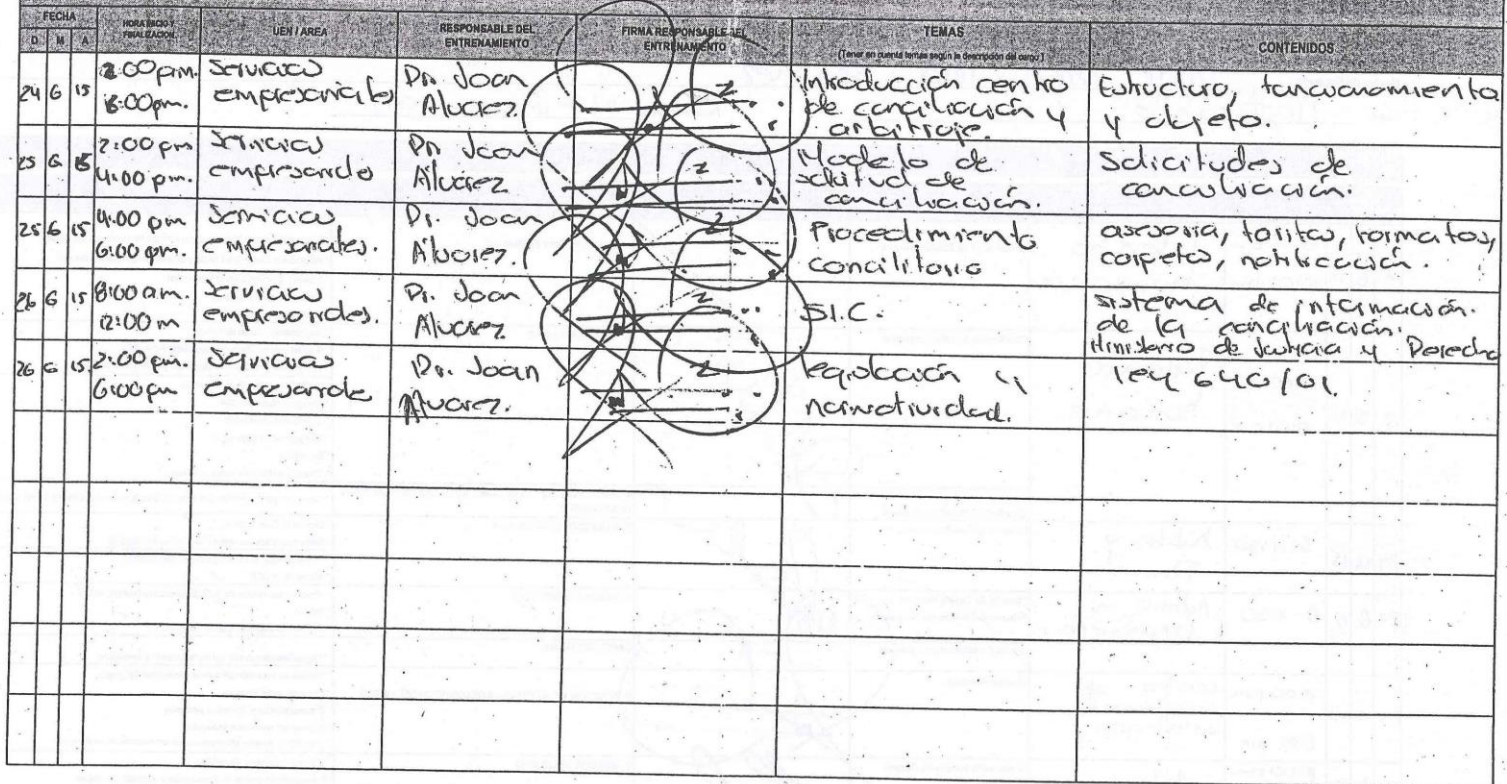 FECHA
HORA INICIO Y FINALIZACION
UEN / AREA
RESPONSABLE DEL ENTRENAMIENTO
FIRMA RESPONSABLE DEL ENTRENAMIENTO
TEMAS
(Tener en cuenta temas según la descripción del cargo)
CONTENIDOS
D M A
24 6 15
2:00 pm.
6:00 pm.
Servicios
empresariales
Dr. Joan
Alvarez
Introducción centro
de conciliación y
arbitraje.
Estructura, funcionamiento
y objeto.
25 6 15
2:00 pm
4:00 pm.
Servicios
empresariales
Dr. Joan
Alvarez
Modelo de
solicitud de
conciliación.
Solicitudes de
conciliación.
25 6 15
4:00 pm
6:00 pm.
Servicios
empresariales.
Dr. Joan
Alvarez.
Procedimiento
concilitorio
asesoria, tarifas, formatos,
carpetas, notificación.
26 6 15
8:00 am.
12:00 m
Servicios
empresariales.
Dr. Joan
Alvarez
S.I.C.
sistema de información.
de la conciliación.
Ministerio de Justicia y Derecho
26 6 15
2:00 pm.
6:00 pm
Servicios
empresariales
Dr. Joan
Alvarez.
legislación y
normatividad.
ley 640/01.